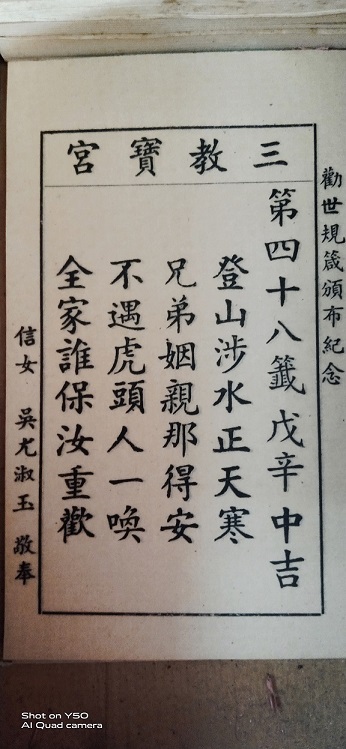 勸世規箴頒布紀念
三教寶宮
第四十八籤戊辛中吉
登山涉水正天寒
兄弟姻親那得安
不遇虎頭人一喚
全家誰保汝重歡
信女 吳尤淑玉 敬奉
Shot on Y50
AI Quad camera